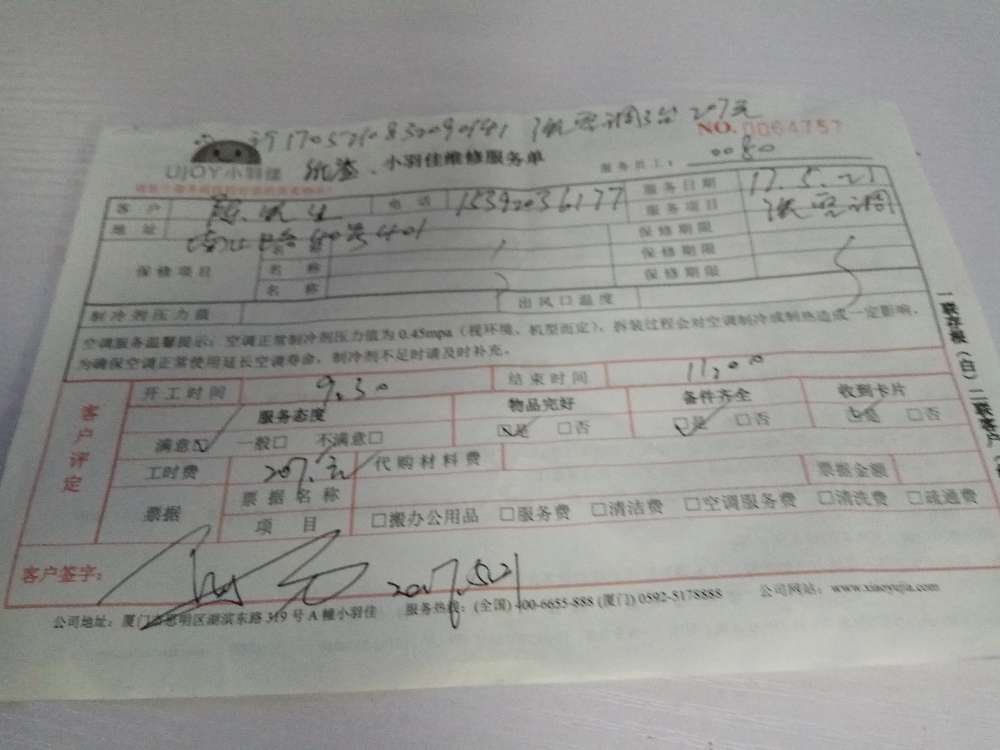 订1705210832090941 洗空调3台 207元
NO. 0064757
UJOY小羽佳 纸渣、小羽佳维修服务单 服务员工: 0080
客户 电话 15392036177 服务日期 17.5.21
地址 40号401 服务项目 洗空调
保修项目 名称 保修期限
名称 保修期限
名称 保修期限
制冷剂压力值 出风口温度
空调服务温馨提示:空调正常制冷剂压力值为0.45mpa(视环境、机型而定),拆装过程会对空调制冷或制热造成一定影响,
为确保空调正常使用延长空调寿命,制冷剂不足时请及时补充。
客户评定
开工时间 9:30 结束时间 11:00
服务态度 物品完好 备件齐全 收到卡片
满意☑ 一般□ 不满意□ ☑是 □否 ☑是 □否 ☑是 □否
工时费 207.元 代购材料费
票据 票据名称 票据金额
项目 □搬办公用品 □服务费 □清洁费 □空调服务费 □清洗费 □疏通费
客户签字: 2017.5.21
公司地址:厦门市思明区湖滨东路319号A幢小羽佳 服务热线:(全国)400-6655-888 (厦门) 0592-5178888 公司网站:www.xiaoyujia.com
一联存根(白)二联客户